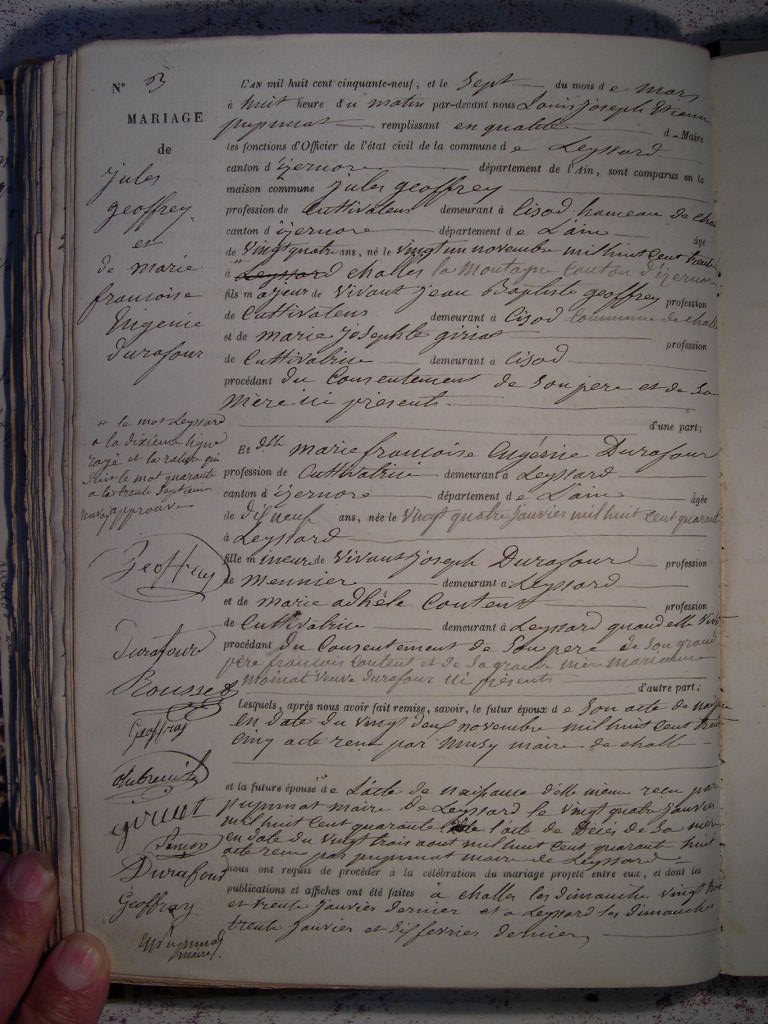 N° 3
MARIAGE
de
jules
geoffrey
et
de marie
francoise
Eugenie
durafour
L'AN mil huit cent cinquante-neuf, et le Sept du mois de mars
à huit heure du matin par-devant nous Louis joseph Etienne
puymmat remplissant en qualité d Maire
les fonctions d'Officier de l'état civil de la commune de Leyssard
canton d'izernore département de l'Ain, sont comparus en la
maison commune jules geoffrey
profession de Cultivateur demeurant à Cisod hameau de
canton d'izernore département de L'ain âgé
de vingt quatre ans, né le vingt un novembre mil huit Cent trente
à Leyssard challes la montagne Canton d'izernore
fils majeur de vivant jean Baptiste geoffrey profession
de Cultivateur demeurant à Cisod Commune de chall
et de marie josephte profession
de Cultivatrice demeurant à Cisod
procédant du Consentement de Son pere et de Sa
mère ici présents
d'une part;
Et dlle marie francoise Eugénie Durafour
profession de Cultivatrice demeurant à Leyssard
canton d'izernore département de L'ain âgée
de dix neuf ans, née le vingt quatre janvier mil huit Cent quarante
à Leyssard
fille mineure de vivant joseph Durafour profession
de meunier demeurant à Leyssard
et de marie adhèle Coutent profession
de Cultivatrice demeurant à Leyssard quand elle
procédant du Consentement de Son pere de Son grand
père francois Coutent et de Sa grande mère
moinat veuve durafour ici présents
d'autre part;
Lesquels, après nous avoir fait remise, savoir, le futur époux de Son acte de
en date du vingt deux novembre mil huit Cent trente
cinq acte recu par musy maire de chall
et la future épouse de L'acte de naissance d'elle meme recu par
puymmat maire de Leyssard le vingt quatre janvier
mil huit Cent quarante l'acte de Décès de Sa mère
en date du vingt trois aout mil huit Cent quarante huit
acte recu par puymmat maire de Leyssard
nous ont requis de procéder à la célébration du mariage projeté entre eux, et dont les
publications et affiches ont été faites à challes les dimanche vingt
et trente janvier dernier et a Leyssard les dimanches
trente janvier et Six fevrier dernier
le mot Leyssard
a la dixieme ligne
rayé et la rature qui
Suit le mot quarante
a la trente Septieme
approuvé
Geoffray
Durafour
Rousset
Geoffray
Dubreuil
Durafour
Geoffray
maire